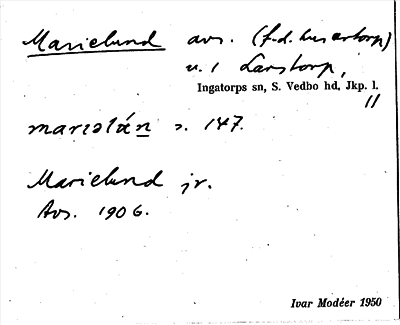 Marielund avs. (f.d. husartorp)
u. 1 Larstorp,
Ingatorps sn, S. Vedbo hd, Jkp. l.
11
marıəlán s. 147.
Marielund jr.
Avs. 1906.
Ivar Modéer 1950